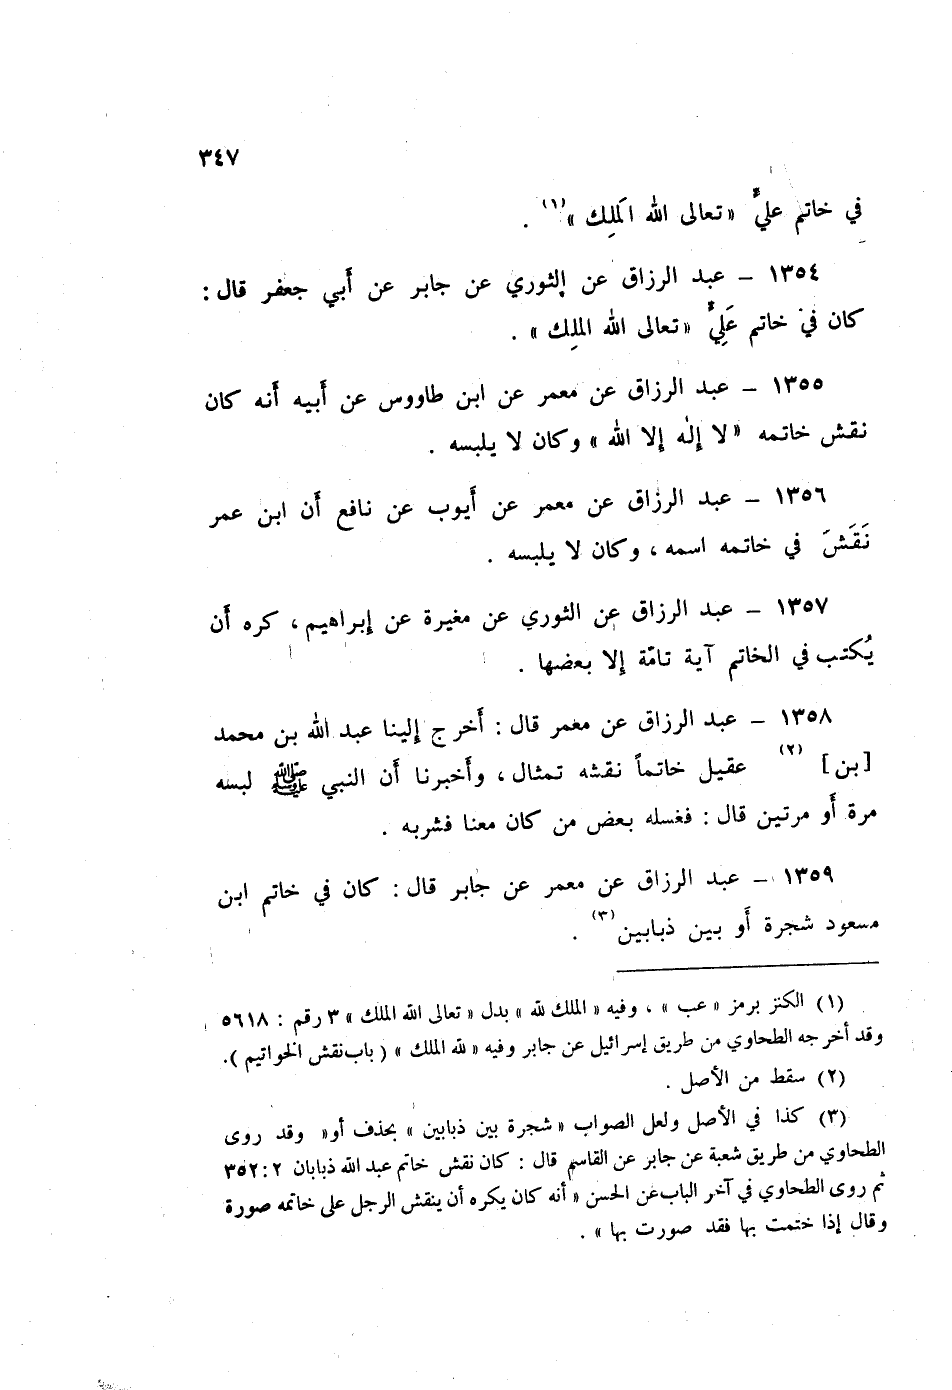 ٣٤٧
في خاتم عليٍّ « تعالى الله المَلِك »(١) .
١٣٥٤ – عبد الرزاق عن الثوري عن جابر عن أبي جعفر قال :
كان في خاتم عَلِيٍّ « تعالى الله الملِك » .
١٣٥٥ – عبد الرزاق عن معمر عن ابن طاووس عن أبيه أنه كان
نقش خاتمه « لا إلٰه إلا الله » وكان لا يلبسه .
١٣٥٦ – عبد الرزاق عن معمر عن أيوب عن نافع أن ابن عمر
نَقَشَ في خاتمه اسمه ، وكان لا يلبسه .
١٣٥٧ – عبد الرزاق عن الثوري عن مغيرة عن إبراهيم ، كره أن
يُكتب في الخاتم آية تامّة إلا بعضها .
١٣٥٨ – عبد الرزاق عن معمر قال : أخرج إلينا عبد الله بن محمد
[بن](٢) عقيل خاتماً نقشه تمثال ، وأخبرنا أن النبي ﷺ لبسه
مرة أو مرتين قال : فغسله بعض من كان معنا فشربه .
١٣٥٩ – عبد الرزاق عن معمر عن جابر قال : كان في خاتم ابن
مسعود شجرة أو بين ذبابين(٣) .
(١) الكنز برمز « عب » ، وفيه « الملك لله » بدل « تعالى الله الملك » ٣ رقم : ٥٦١٨
وقد أخرجه الطحاوي من طريق إسرائيل عن جابر وفيه « لله الملك » ( باب نقش الخواتيم ).
(٢) سقط من الأصل .
(٣) كذا في الأصل ولعل الصواب « شجرة بين ذبابين » بحذف أو« وقد روى
الطحاوي من طريق شعبة عن جابر عن القاسم قال : كان نقش خاتم عبد الله ذبابان ٢ : ٣٥٢
ثم روى الطحاوي في آخر الباب عن الحسن « أنه كان يكره أن ينقش الرجل على خاتمه صورة
وقال إذا ختمت بها فقد صورت بها » .